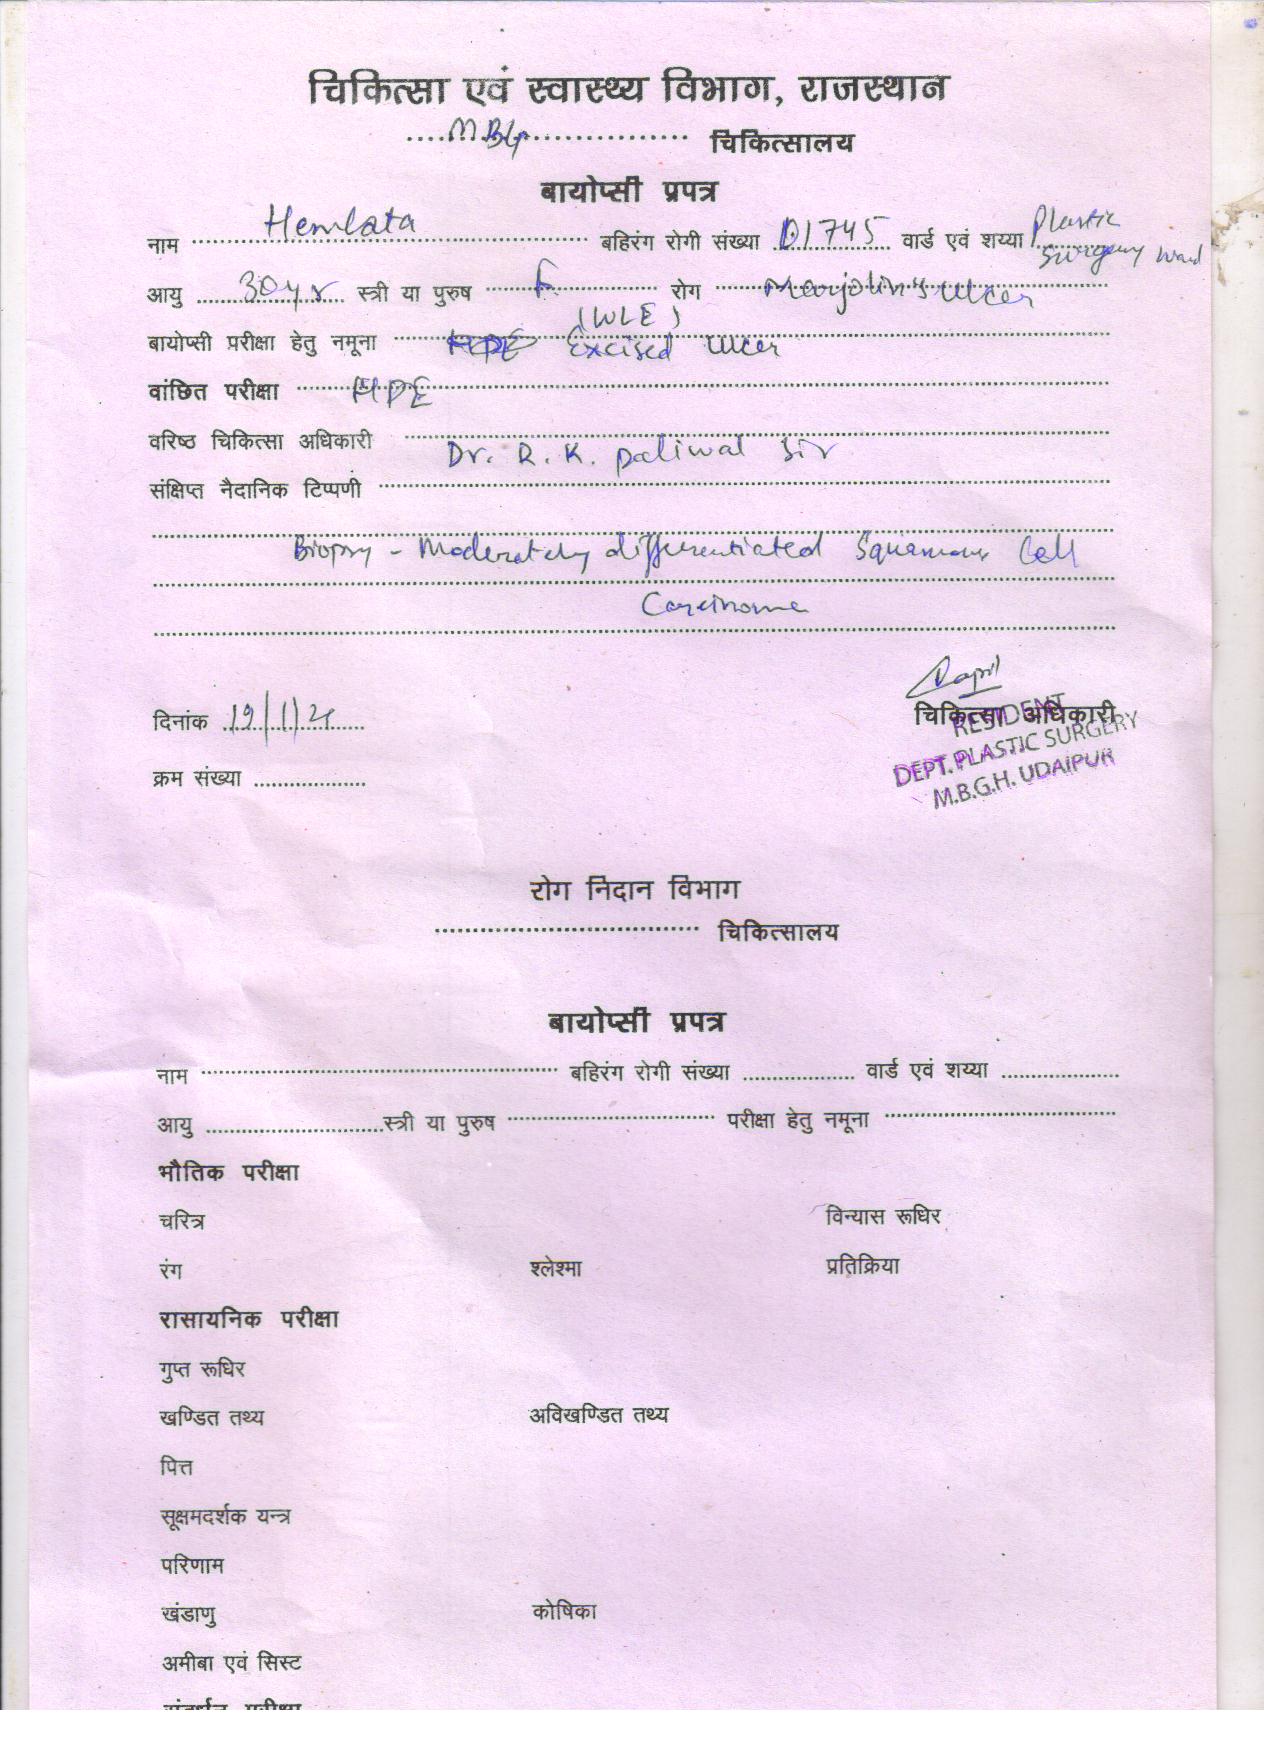 चिकित्सा एवं स्वास्थ्य विभाग, राजस्थान
....MBG.................... चिकित्सालय
बायोप्सी प्रपत्र
नाम Hemlata बहिरंग रोगी संख्या 01745 वार्ड एवं शय्या Plastic Surgery Ward
आयु 30yr स्त्री या पुरुष F रोग Marjolin's Ulcer
(WLE)
बायोप्सी परीक्षा हेतु नमूना HPE Excised Ulcer
वांछित परीक्षा HPE
वरिष्ठ चिकित्सा अधिकारी Dr. R. K. Paliwal Sir
संक्षिप्त नैदानिक टिप्पणी
Biopsy - Moderately differentiated Squamous Cell
Carcinoma
दिनांक 19/1/24
चिकित्सा अधिकारी
RESIDENT
DEPT. PLASTIC SURGERY
M.B.G.H. UDAIPUR
क्रम संख्या
रोग निदान विभाग
चिकित्सालय
बायोप्सी प्रपत्र
नाम बहिरंग रोगी संख्या वार्ड एवं शय्या
आयु स्त्री या पुरुष परीक्षा हेतु नमूना
भौतिक परीक्षा
चरित्र विन्यास रूधिर
रंग श्लेश्मा प्रतिक्रिया
रासायनिक परीक्षा
गुप्त रूधिर
खण्डित तथ्य अविखण्डित तथ्य
पित्त
सूक्षमदर्शक यन्त्र
परिणाम
खंडाणु कोषिका
अमीबा एवं सिस्ट